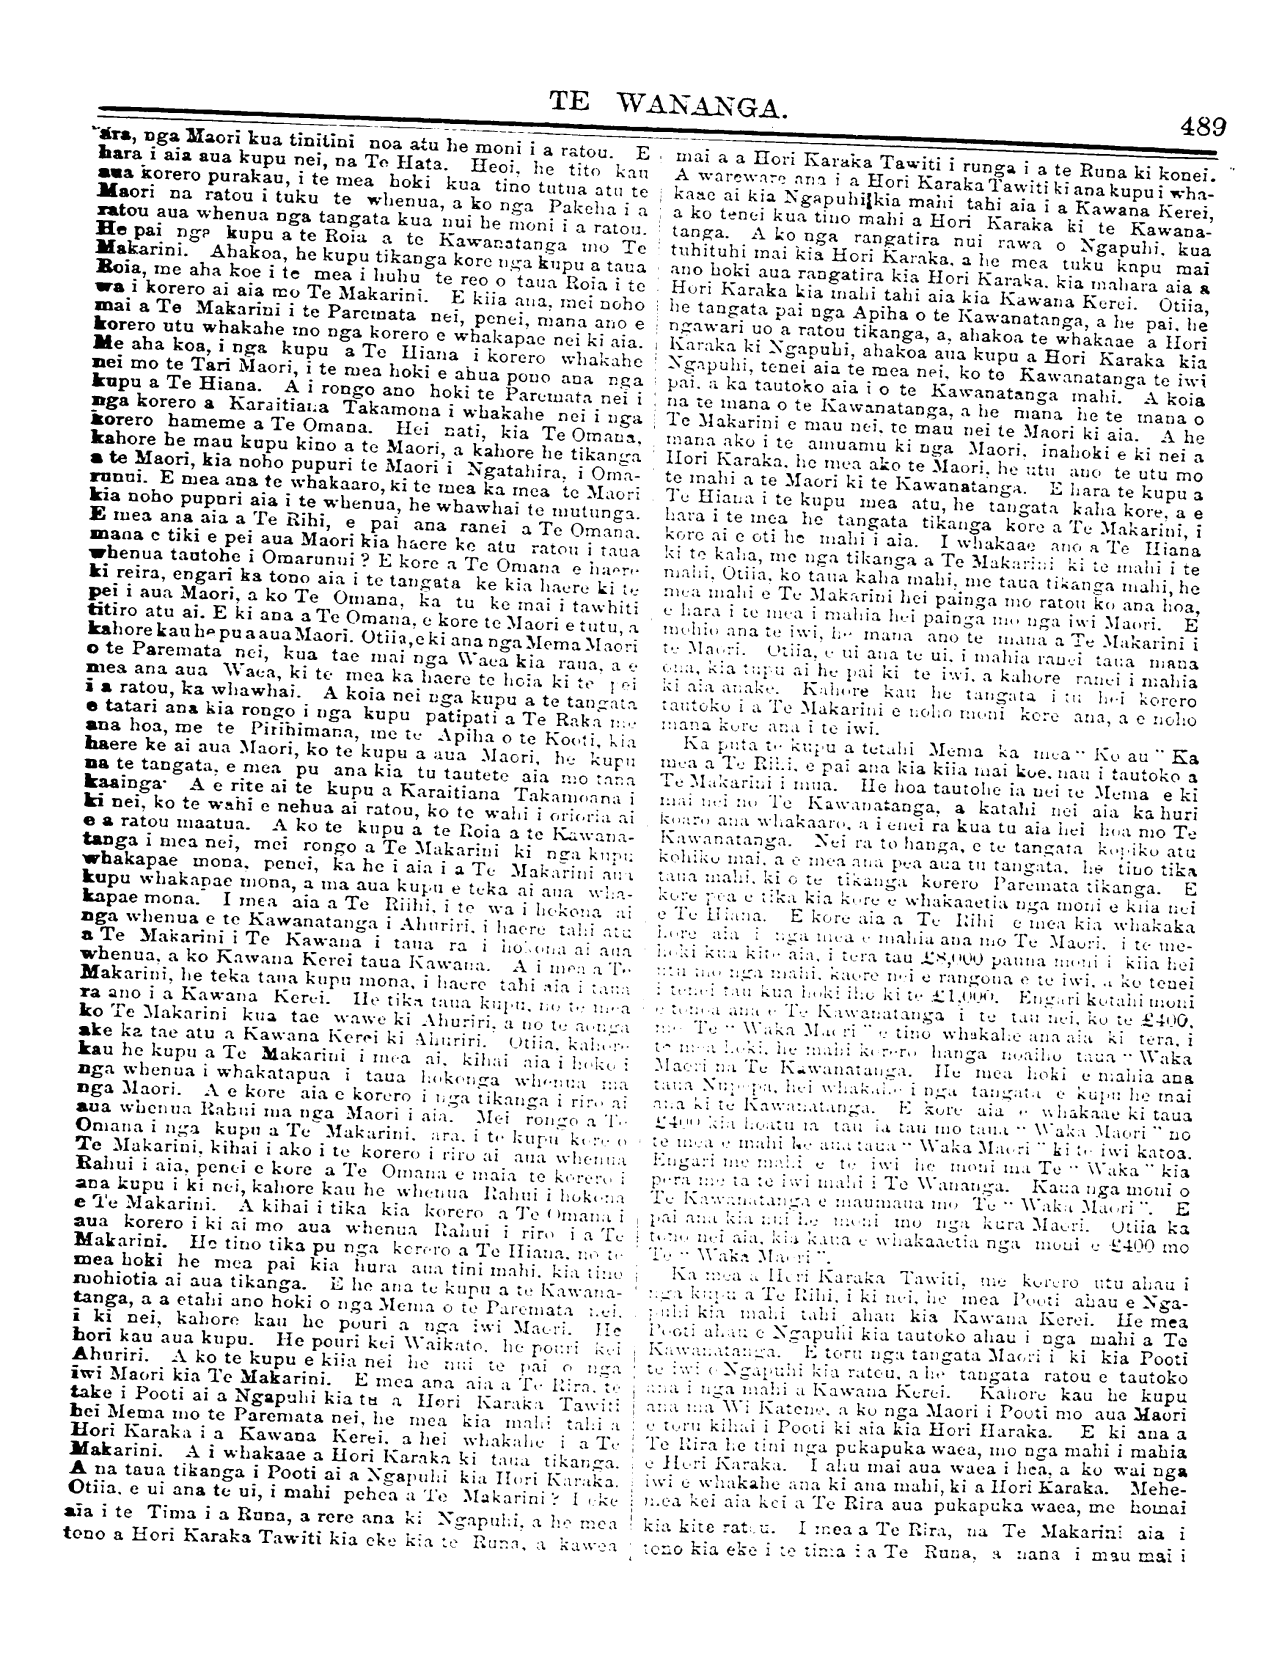 TE WANANGA.
489
ara, nga Maori kua tinitini noa atu he moni i a ratou. E
hara i aia aua kupu nei, na Te Hata. Heoi, he tito kau
aua korero purakau, i te mea hoki kua tino tutua atu te
Maori na ratou i tuku te whenua, a ko nga Pakeha i a
ratou aua whenua nga tangata kua nui he moni i a ratou.
He pai nga kupu a te Roia a te Kawanatanga mo Te
Makarini. Ahakoa, he kupu tikanga kore nga kupu a taua
Roia, me aha koe i te mea i huhu te reo o taua Roia i te
wa i korero ai aia mo Te Makarini. E kiia ana, mei noho
mai a Te Makarini i te Paremata nei, penei, mana ano e
korero utu whakahe mo nga korero e whakapae nei ki aia.
Me aha koa, i nga kupu a Te Hiana i korero whakahe
nei mo te Tari Maori, i te mea hoki e ahua pono ana nga
kupu a Te Hiana. A i rongo ano hoki te Paremata nei i
nga korero a Karaitiana Takamona i whakahe nei i nga
korero hameme a Te Omana. Hei nati, kia Te Omana,
kahore he mau kupu kino a te Maori, a kahore he tikanga
a te Maori, kia noho pupuri te Maori i Ngatahira, i Oma-
runui. E mea ana te whakaaro, ki te mea ka mea te Maori
kia noho pupuri aia i te whenua, he whawhai te mutunga.
E mea ana aia a Te Rihi, e pai ana ranei a Te Omana.
mana e tiki e pei aua Maori kia haere ke atu ratou i taua
whenua tautohe i Omarunui? E kore a Te Omana e haere
ki reira, engari ka tono aia i te tangata ke kia haere ki te
pei i aua Maori, a ko Te Omana, ka tu ke mai i tawhiti
titiro atu ai. E ki ana a Te Omana, e kore te Maori e tutu, a
kahore kau he pu a aua Maori. Otiia, e ki ana nga Mema Maori
o te Paremata nei, kua tae mai nga Waea kia raua, a e
mea ana aua Waea, ki te mea ka haere te hoia ki te pei
i a ratou, ka whawhai. A koia nei nga kupu a te tangata
e tatari ana kia rongo i nga kupu patipati a Te Raka me
ana hoa, me te Pirihimana, me te Apiha o te Kooti, kia
haere ke ai aua Maori, ko te kupu a aua Maori, he kupu
na te tangata, e mea pu ana kia tu tautete aia mo tana
kaainga. A e rite ai te kupu a Karaitiana Takamoana i
ki nei, ko te wahi e nehua ai ratou, ko te wahi i orioria ai
e a ratou maatua. A ko te kupu a te Roia a te Kawana-
tanga i mea nei, mei rongo a Te Makarini ki nga kupu
whakapae mona, penei, ka he i aia i a Te Makarini aua
kupu whakapae mona, a ma aua kupu e teka ai aua wha-
kapae mona. I mea aia a Te Riihi, i te wa i hokona ai
nga whenua e te Kawanatanga i Ahuriri, i haere tahi atu
a Te Makarini i Te Kawana i taua ra i hokona ai aua
whenua, a ko Kawana Kerei taua Kawana. A i mea a Te
Makarini, he teka taua kupu mona, i haere tahi aia i taua
ra ano i a Kawana Kerei. He tika taua kupu, no te mea
ko Te Makarini kua tae wawe ki Ahuriri, a no te aonga
ake ka tae atu a Kawana Kerei ki Ahuriri. Otiia, kahore
kau he kupu a Te Makarini i mea ai, kihai aia i hoko i
nga whenua i whakatapua i taua hokonga whenua ma
nga Maori. A e kore aia e korero i nga tikanga i riro ai
aua whenua Rahui ma nga Maori i aia. Mei rongo a Te
Omana i nga kupu a Te Makarini, ara, i te kupu kore o
Te Makarini, kihai i ako i te korero i riro ai aua whenua
Rahui i aia, penei e kore a Te Omana e maia te korero i
ana kupu i ki nei, kahore kau he whenua Rahui i hokona
e Te Makarini. A kihai i tika kia korero a Te Omana i
aua korero i ki ai mo aua whenua Rahui i riro i a Te
Makarini. He tino tika pu nga korero a Te Hiana, no te
mea hoki he mea pai kia hura aua tini mahi, kia tino
mohiotia ai aua tikanga. E he ana te kupu a te Kawana-
tanga, a a etahi ano hoki o nga Mema o te Paremata nei,
i ki nei, kahore kau he pouri a nga iwi Maori. He
hori kau aua kupu. He pouri kei Waikato, he pouri kei
Ahuriri. A ko te kupu e kiia nei he nui te pai o nga
iwi Maori kia Te Makarini. E mea ana aia a Te Rira, te
take i Pooti ai a Ngapuhi kia tu a Hori Karaka Tawiti
hei Mema mo te Paremata nei, he mea kia mahi tahi a
Hori Karaka i a Kawana Kerei, a hei whakahe i a Te
Makarini. A i whakaae a Hori Karaka ki taua tikanga.
A na taua tikanga i Pooti ai a Ngapuhi kia Hori Karaka.
Otiia, e ui ana te ui, i mahi pehea a Te Makarini? I eke
aia i te Tima i a Runa, a rere ana ki Ngapuhi, a he mea
tono a Hori Karaka Tawiti kia eke kia te Runa, a kawea
mai a a Hori Karaka Tawiti i runga i a te Runa ki konei.
A wareware ana i a Hori Karaka Tawiti ki ana kupu i wha-
kaae ai kia Ngapuhi kia mahi tahi aia i a Kawana Kerei,
a ko tenei kua tino mahi a Hori Karaka ki te Kawana-
tanga. A ko nga rangatira nui rawa o Ngapuhi, kua
tuhituhi mai kia Hori Karaka, a he mea tuku kupu mai
ano hoki aua rangatira kia Hori Karaka, kia mahara aia a
Hori Karaka kia mahi tahi aia kia Kawana Kerei. Otiia,
he tangata pai nga Apiha o te Kawanatanga, a he pai, he
ngawari uo a ratou tikanga, a, ahakoa te whakaae a Hori
Karaka ki Ngapuhi, ahakoa aua kupu a Hori Karaka kia
Ngapuhi, tenei aia te mea nei, ko te Kawanatanga te iwi
pai, a ka tautoko aia i o te Kawanatanga mahi. A koia
na te mana o te Kawanatanga, a he mana he te mana o
Te Makarini e mau nei, te mau nei te Maori ki aia. A he
mana ako i te amuamu ki nga Maori, inahoki e ki nei a
Hori Karaka, he mea ako te Maori, he utu ano te utu mo
te mahi a te Maori ki te Kawanatanga. E hara te kupu a
Te Hiana i te kupu mea atu, he tangata kaha kore, a e
hara i te mea he tangata tikanga kore a Te Makarini, i
kore ai e oti he mahi i aia. I whakaae ano a Te Hiana
ki te kaha, me nga tikanga a Te Makarini ki te mahi i te
mahi, Otiia, ko taua kaha mahi, me taua tikanga mahi, he
mea mahi e Te Makarini hei painga mo ratou ko ana hoa,
e hara i te mea i mahia hei painga mo nga iwi Maori. E
mohio ana te iwi, he mana ano te mana a Te Makarini i
te Maori. Otiia, e ui ana te ui, i mahia ranei taua mana
ona, kia tupu ai he pai ki te iwi, a kahore ranei i mahia
ki aia anake. Kahore kau he tangata i tu hei korero
tautoko i a Te Makarini e noho moni kore ana, a e noho
mana kore ana i te iwi.
Ka puta te kupu a tetahi Mema ka mea "Ko au" Ka
mea a Te Rihi, e pai ana kia kiia mai koe, nau i tautoko a
Te Makarini i mua. He hoa tautohe ia nei te Mema e ki
mai nei no Te Kawanatanga, a katahi nei aia ka huri
koaro ana whakaaro, a i enei ra kua tu aia hei hoa mo Te
Kawanatanga. Nei ra to hanga, e te tangata kopiko atu
kohiko mai, a e mea ana pea aua tu tangata, he tino tika
taua mahi, ki o te tikanga korero Paremata tikanga. E
kore pea e tika kia kore e whakaaetia nga moni e kiia nei
e Te Hiana. E kore aia a Te Rihi e mea kia whakaka
hore aia i nga mea e mahia ana mo Te Maori, i te me-
hoki kua kite aia, i tera tau £8,000 pauna moni i kiia hei
utu mo nga mahi, kaore nei e rangona e te iwi, a ko tenei
i tenei tau kua hoki iho ki te £1,000. Engari kotahi moni
e tonoa ana e Te Kawanatanga i te tau nei, ko te £400,
mo Te "Waka Maori" e tino whakahe ana aia ki tera, i
te mea hoki, he mahi korero hanga noaiho taua "Waka
Maori na Te Kawanatanga. He mea hoki e mahia ana
taua Nupepa, hei whakahe i nga tangata e kupu he mai
ana ki te Kawanatanga. E kore aia e whakaae ki taua
£400 kia hoatu ia tau ia tau mo taua "Waka Maori" no
te mea e mahi he ana taua "Waka Maori" ki te iwi katoa.
Engari me mahi e te iwi he moni ma Te "Waka" kia
pera me ta te iwi mahi i Te Wananga. Kaua nga moni o
Te Kawanatanga e maumaua mo Te "Waka Maori". E
pai ana kia nui he moni mo nga kura Maori. Otiia ka
tono nei aia, kia kaua e whakaaetia nga moni e £400 mo
Te "Waka Maori".
Ka mea a Hori Karaka Tawiti, me korero utu ahau i
nga kupu a Te Rihi, i ki nei, he mea Pooti ahau e Nga-
puhi kia mahi tahi ahau kia Kawana Kerei. He mea
Pooti ahau e Ngapuhi kia tautoko ahau i nga mahi a Te
Kawanatanga. E toru nga tangata Maori i ki kia Pooti
te iwi o Ngapuhi kia ratou, a he tangata ratou e tautoko
ana i nga mahi a Kawana Kerei. Kahore kau he kupu
ana ma Wi Katene, a ko nga Maori i Pooti mo aua Maori
e toru kihai i Pooti ki aia kia Hori Haraka. E ki ana a
Te Rira he tini nga pukapuka waea, mo nga mahi i mahia
e Hori Karaka. I ahu mai aua waea i hea, a ko wai nga
iwi e whakahe ana ki ana mahi, ki a Hori Karaka. Mehe-
mea kei aia kei a Te Rira aua pukapuka waea, me homai
kia kite ratou. I mea a Te Rira, na Te Makarini aia i
tono kia eke i te tima i a Te Runa, a nana i mau mai i